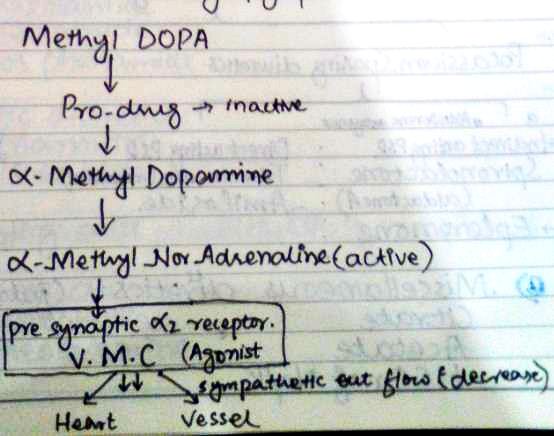 Methyl DOPA
↓
Pro-drug → inactive
↓
α-Methyl Dopamine
↓
α-Methyl Nor Adrenaline (active)
↓
Pre synaptic α2 receptor.
V.M.C (Agonist
↓↓ sympathetic out flow (decrease)
Heart Vessel